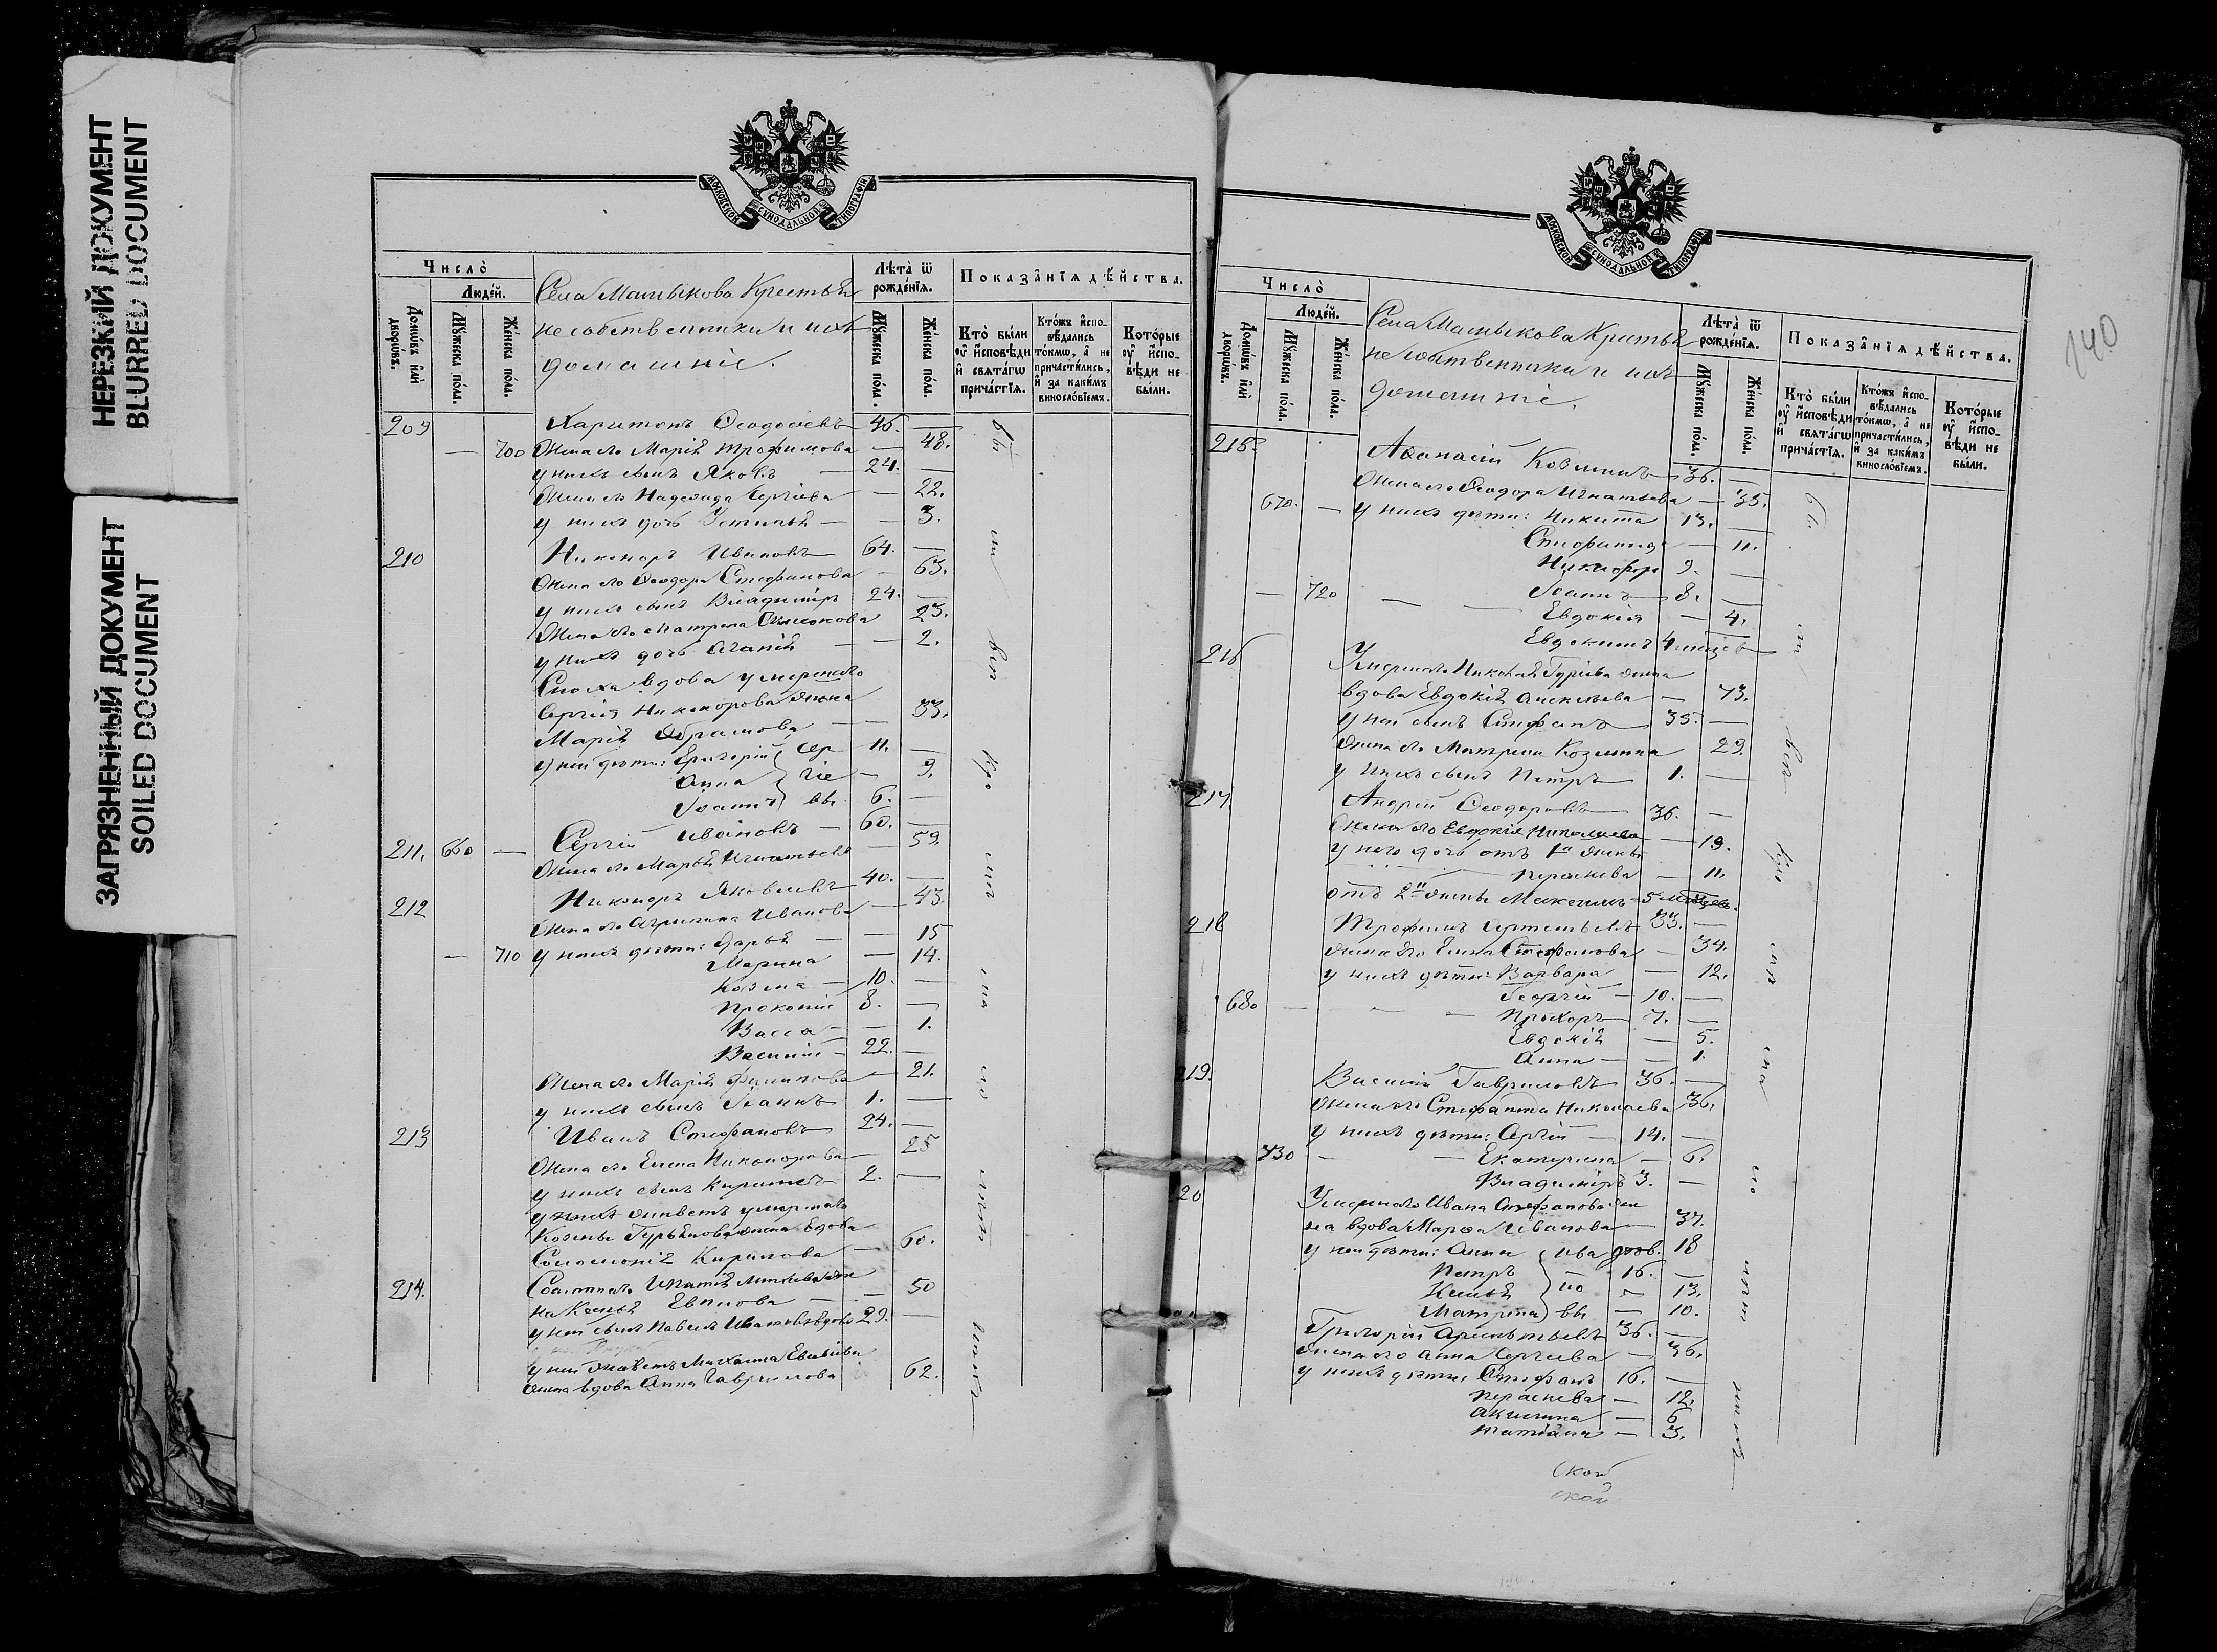 НЕРЕЗКИЙ ДОКУМЕНТ
BLURRED DOCUMENT
ЗАГРЯЗНЕННЫЙ ДОКУМЕНТ
SOILED DOCUMENT
МОСКОВСКОЙ СУНОДАЛЬНОЙ ТИПОГРАФІИ
Число̀
Людéй.
Домѡ́въ и҆лѝ дворѡ́въ.
Мꙋ́жеска по́ла.
Жéнска по́ла.
Села Малыкова Крестья
не собственники и ихъ
домашніе.
Лѣ́та ѿ рождéнїѧ.
Мꙋ́жеска по́ла.
Жéнска по́ла.
Показа̂нїѧ дѣ́йства.
Кто̀ бы́ли ᲂу҆ и҆сповѣди и҆ свѧта́гѡ прича́стїѧ.
Кто́жъ и҆спо-вѣдались то́кмѡ, а҆ не причасти́лись, и҆ за каки́мъ винослóвїемъ.
Кото́рые ᲂу҆ и҆спо-вѣди не бы́ли.
209 Харитонъ Ѳеодосіевъ 46. —
— 700 Жена его Марія Трофимова — 48.
у нихъ сынъ Яковъ — 24. —
Жена его Надежда Сергіева — 22.
у нихъ дочь Устинья — — 3.
210 Никоноръ Ивановъ 64. —
Жена его Ѳеодора Стефанова — 63.
у нихъ сынъ Владиміръ 24. —
Жена его Матрена Симеонова 23.
у нихъ дочь Агапія — — 2.
Сноха вдова умершаго
Сергія Никонорова жена
Марія Абрамова — — 33.
у ней дѣти: Григорій Сер 11. —
Анна гіе — 9.
Іоаннъ вы 6. —
211. 660 — Сергій Ивановъ — 60. —
Жена его Марья Игнатьева — 59.
212 Никоноръ Яковлевъ 40. —
Жена его Агрипина Иванова — 43.
— 710 у нихъ дѣти: Дарья — — 15
Марина — 14.
Козма — 10. —
Прокопій 8. —
Васса — — 1.
Василій — 22. —
Жена его Марія Филипова — 21.
у нихъ сынъ Іоаннъ 1. —
213 Иванъ Стефановъ 24. —
Жена его Елена Никонорова — 25
у нихъ сынъ 2. —
у нихъ живетъ умершаго
Козмы Гурьянова жена вдова
Соломонія Кирилова — 60.
214. Солдатка Же
на Евпилова — — 50
у ней сынъ Павелъ 29. —
у ней живетъ Михаила
жена вдова Анна Гаврилова 62.
бы ли вси кро ми на по ить ныхъ
МОСКОВСКОЙ СУНОДАЛЬНОЙ ТИПОГРАФІИ
140
Число̀
Людéй.
Домѡ́въ и҆лѝ дворѡ́въ.
Мꙋ́жеска по́ла.
Жéнска по́ла.
Села Малыкова Крестья
не собственники и ихъ
домашніе.
Лѣ́та ѿ рождéнїѧ.
Мꙋ́жеска по́ла.
Жéнска по́ла.
Показа̂нїѧ дѣ́йства.
Кто̀ бы́ли ᲂу҆ и҆сповѣди и҆ свѧта́гѡ прича́стїѧ.
Кто́жъ и҆спо-вѣдались то́кмѡ, а҆ не причасти́лись, и҆ за каки́мъ винослóвїемъ.
Кото́рые ᲂу҆ и҆спо-вѣди не бы́ли.
215. Аѳанасій Козминъ 36. —
Жена его Ѳеодора Игнатьева — 35.
670. — у нихъ дѣти: Никита 13. —
Стефанида — 11.
Никифоръ 9. —
— 720 — — Іоаннъ 8. —
Евдокія — 4.
Евдокимъ 4 мѣсяцев
216 Умершаго Николая Гурьева жена
вдова Евдокія Алексѣева — 73.
у ней сынъ Стефанъ — 35. —
Жена его Матрена Козмина 29.
у нихъ сынъ Петръ — 1. —
217. Андрей Ѳеодоровъ 36. —
Жена его Евдокія Николаева — 19.
у него дочь отъ 1й жены
Параскева — 11.
отъ 2й жены Максимъ — 5 мѣсяцев.
218 Трофимъ Артемьевъ 33. —
жена его Елена Стефанова — 34.
у нихъ дѣти: Варвара — 12.
680 — Георгій — 10. —
Прохоръ — 7. —
Евдокія — 5.
Анна — — 1.
219. Василій Гавриловъ 36. —
Жена его Стефанида Николаева 36.
у нихъ дѣти: Сергій — 14. —
730 — — Екатерина — 6.
Владиміръ 3. —
20 Умершаго Ивана Стефанова же
на вдова Марѳа Иванова — 37.
у ней дѣти: Анна Ива 18
Петръ но 16. —
13.
Матрена вы — 10.
Григорій 36. —
жена его Анна Сергіева — 36.
у нихъ дѣти: Стефанъ 16. —
Параскева — 12.
Акилина — 6
Татіана — 3.
ской
ской